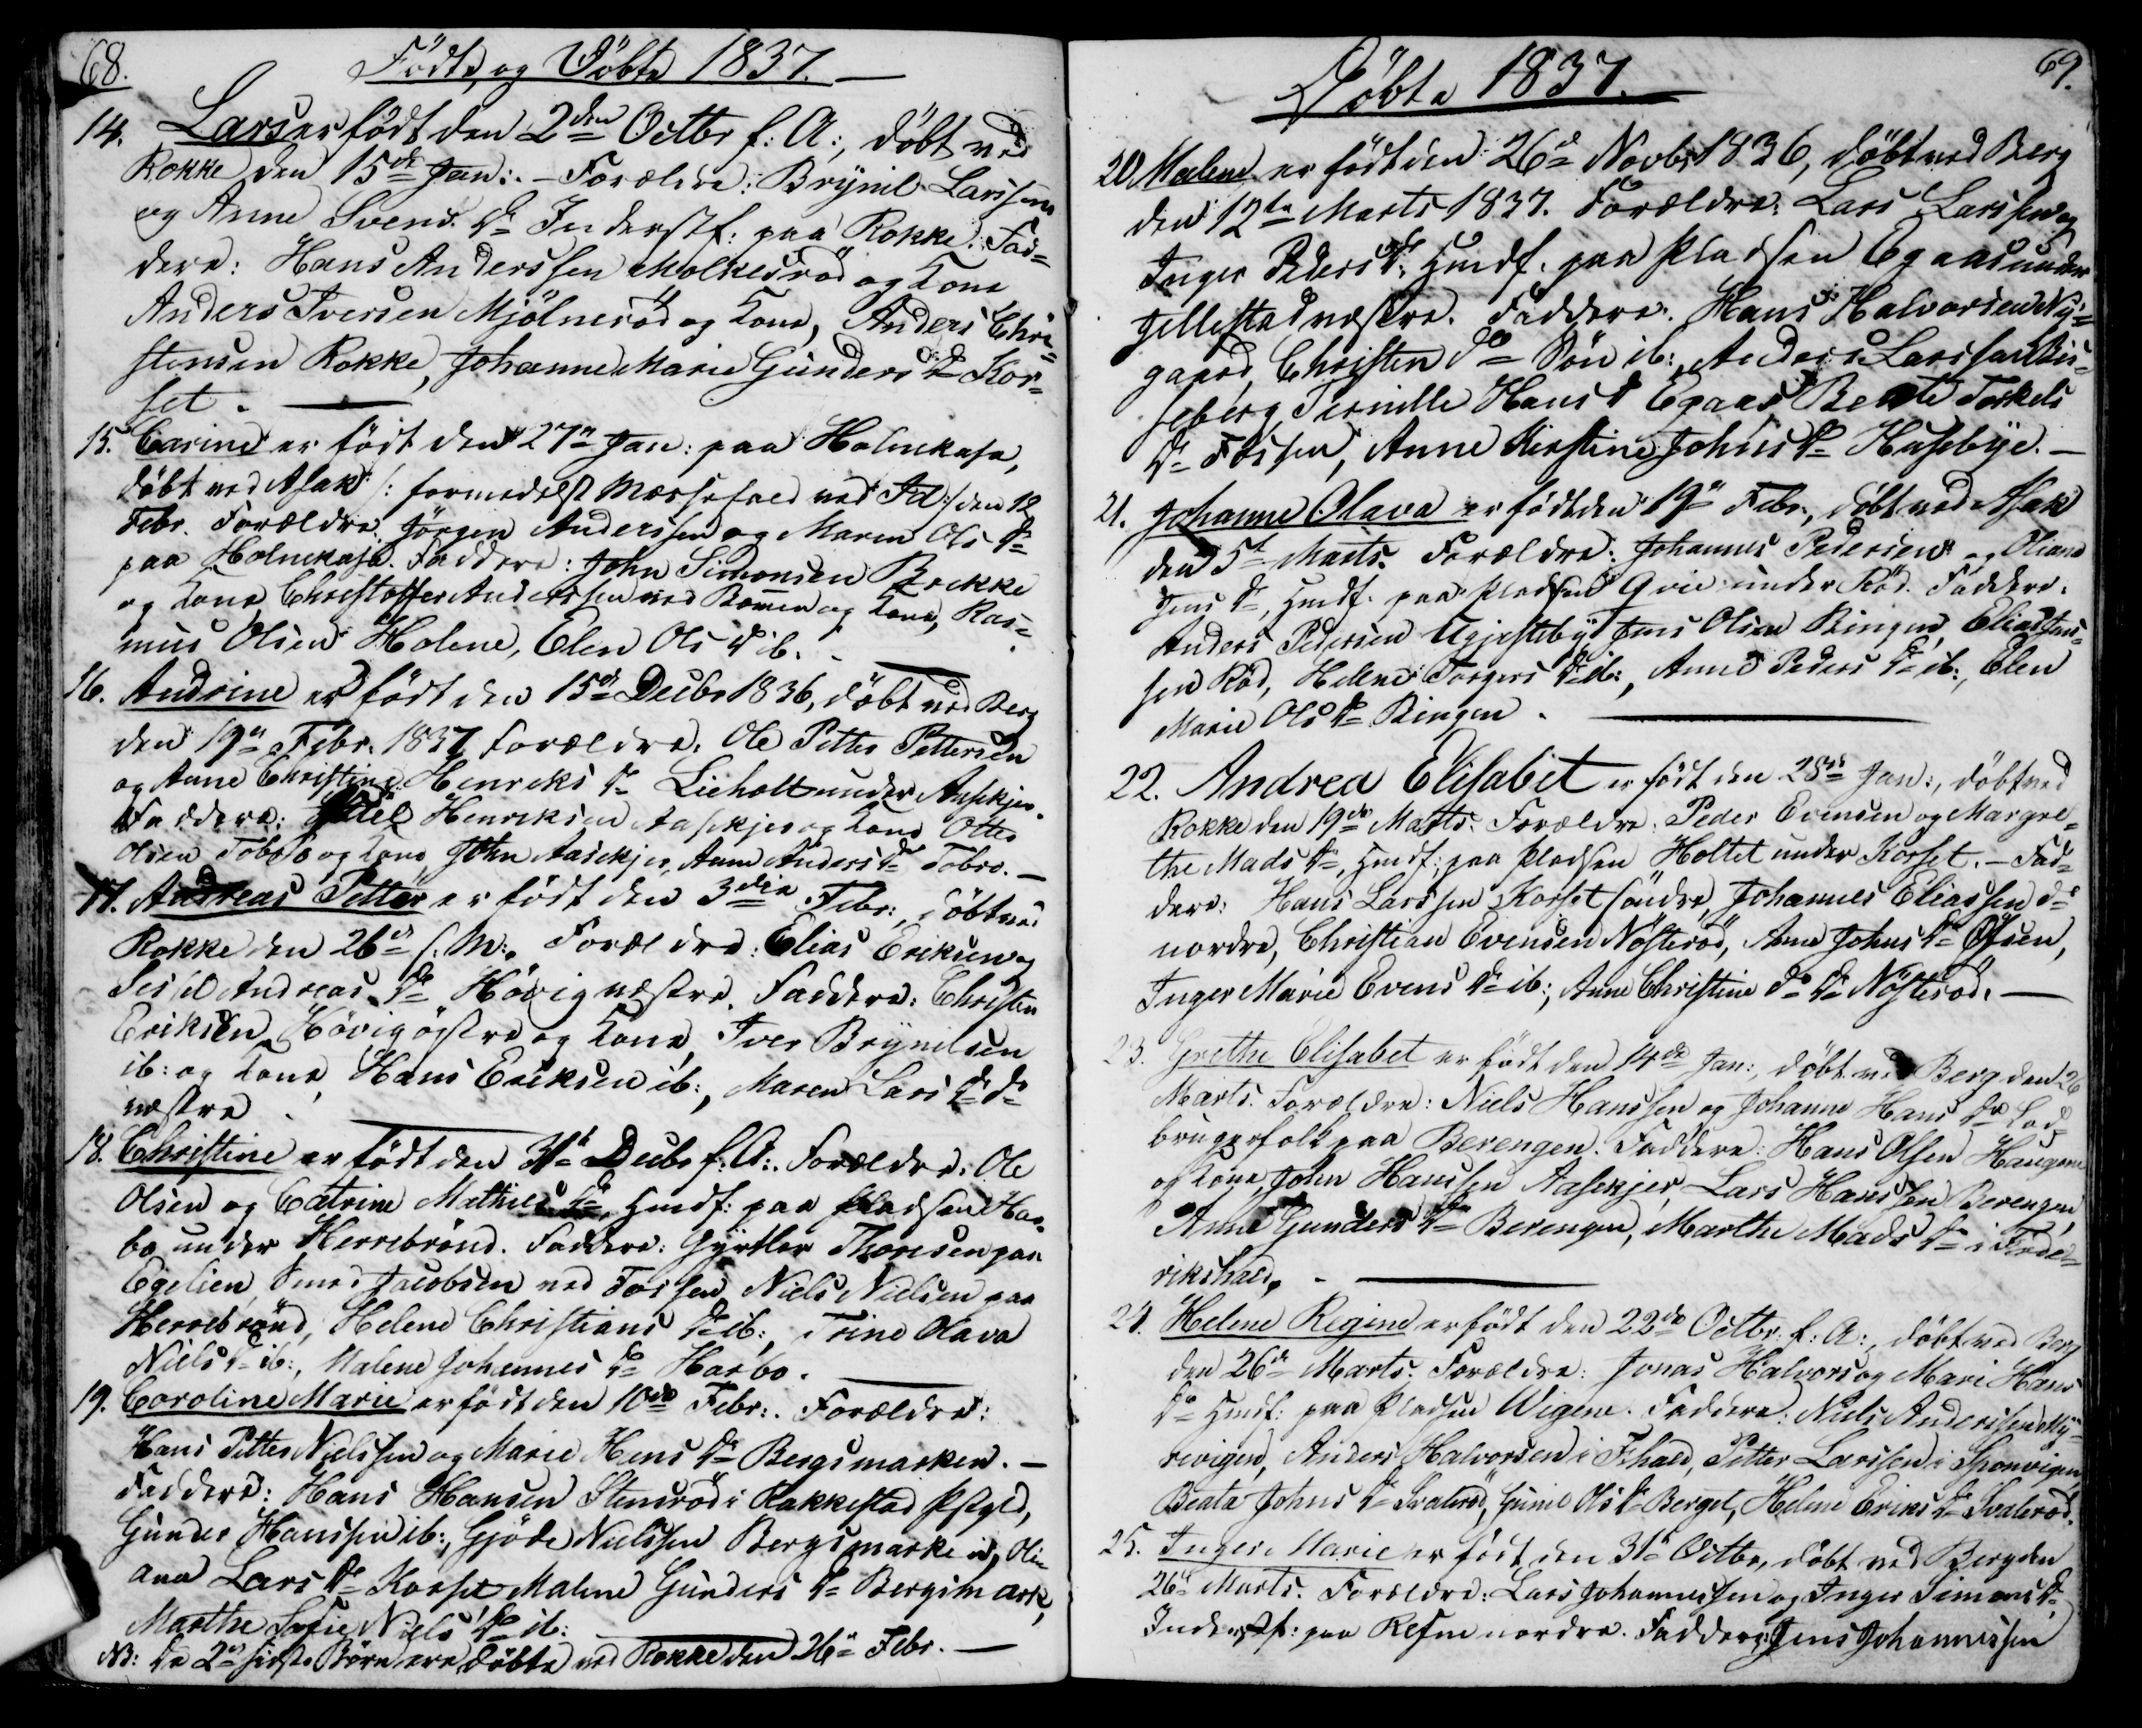 68.
Födte og Döbte 1837.
14. Lars er födt den 2den Octbr f: A:, döbt ved
Rokke den 15de Jan:. - Forældre: Brynil Larssen
og Anne Svens Dr Inderstf: paa Rokke. Fad=
dere: Hans Anderssen Molkesröd og Kone
Anders Iversen Mjölneröd og Kone, Anders Chri=
stensen Rokke, Johanne Marie Gunders Dr Kor=
set.
15. Carine er födt den 27n Jan: paa Holmekasa,
döbt ved Asak /: formedelst Messefald ved Id :/ den 12
Febr. Forældre: Jörgen Anderssen og Maren Ols Dr
paa Holmekasa. Faddere: John Simonsen Brekke
og Kone, Christoffer Anderssen ved Bommen og Kone, Ras=
mus Olsen Holene, Elen Ols Dr ib.
16. Andrine er födt den 15de Decbr 1836, döbt ved Berg
den 19n Febr. 1837. Forældre: Ole Petter Pettersen
og Anne Christine Henriks Dr Lieholt under Aasekjer.
Faddere: Henriksen Aasekjer og Kone Otter
Olsen Tobro og Kone, John Aasekjer, Anne Anders Dr Tobro. -
17. Andreas Petter er födt den 3die Febr:, döbt ved
Rokke den 26de s: M:. Forældre: Elias Eriksen og
Sissel Andreas Dr Hövig vestre. Faddere: Christen
Eriksen Hövig östre og Kone, Iver Brynilsen
ib: og Kone, Hans Eriksen ib:, Maren Lars Dr do
vestre.
18. Christine er födt den 31te Decbr f: A:. Forældre: Ole
Olsen og Catrine Mathies Dr, Husmf: paa Pladsen Har=
bo under Herrebrönd. Faddere: Gyrtler Thoresen paa
Egelien, Jacobsen ved Fossen, Niels Nielsen paa
Herrebrönd, Helene Christians Dr ib:, Trine Olava
Niels Dr ib:, Malene Johannes Dr Harbo.
19. Caroline Marie er födt den 10de Febr:. Forældre:
Hans Petter Nielssen og Marie Hans Dr Bergsmarken. -
Faddere: Hans Hansen Stensröd i Rakkestad Pstgld,
Gunder Hanssen ib:, Gjöde Nielssen Bergsmarken, Oli=
ana Lars Dr Korset, Malene Gunders Dr Bergsmark,
Marthe Sofie Niels Dr ib:
NB: De 2de sidste Börn ere döbte ved Rokke den 26n Febr. -
69.
Döbte 1837.
20. Malene er födt den 26de Novbr 1836, döbt ved Berg
den 12te Marts 1837. Forældre: Lars Larssen og
Inger Peders Dr, Husmf. paa Pladsen Egaas under
Gjellestad vestre. Faddere: Hans Halvorsen Ny=
gaard, Christen do Sön ib:, Anders Larssen Bus=
seberg, Pernille Hans Dr Egaas, Beate Torkels
Dr Fossen, Anne Kirstine Johns Dr Husebye. -
21. Johanne Olava er födt den 19n Febr:, döbt ved Asak
den 5te Marts. Forældre: Johannes Pedersen og Oliane
Jens Dr, Husmf. paa Pladsen Qvie under Röd. Faddere:
Anders Pedersen Ugjesteby, Jens Olsen Bingen, Elias Jens=
sen Röd, Helene Torgers Dr ib:, Anne Peders Dr ib:, Elen
Marie Ols Dr Bingen.
22. Andrea Elisabet er födt den 28de Jan:, döbt ved
Rokke den 19de Marts. Forældre: Peder Evensen og Margre=
the Mads Dr, Husmf: paa Pladsen Holtet under Korset. - Fad=
dere: Hans Larssen Korset söndre, Johannes Eliassen do
nordre, Christian Evensen Nösteröd, Anne Johns Dr Ofsen,
Inger Marie Evens Dr ib:, Anne Christine do Dr Nösteröd. -
23. Grethe Elisabet er födt den 14de Jan:, döbt ved Berg den 26
Marts. Forældre: Niels Hanssen og Johanne Hans Dr Lod=
brugerfolk paa Berengen. Faddere: Hans Olsen Haugene
og Kone, John Hanssen Aasekjer, Lars Hanssen Berengen,
Anne Gunders Dr Berengen, Marthe Mads Dr i Frede=
rikshald.
24. Helene Regine er födt den 22de Octbr. f: A:, döbt ved Berg
den 26de Marts. Forældre: Jonas Halvors og Mari Hans
Dr Husmf: paa Pladsen Wigene. Faddere: Niels Anderssen My=
revigen, Anders Halvorsen i Fhald, Petter Larssen i Sponvigen,
Beata Johns Dr Svaleröd, Gunil Ols Dr Berget, Helene Eriks Dr Svaleröd.
25. Inger Marie er födt den 31te Octbr, döbt ved Berg den
26de Marts. Forældre: Lars Johannessen og Inger Simons Dr
Inderstf: paa Refne nordre. Faddere: Jens Johannessen